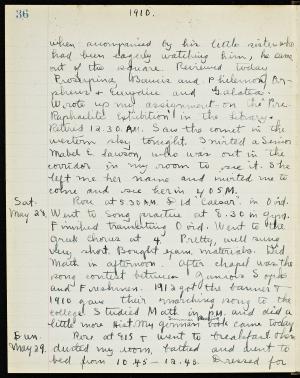 36
1910.
when accompanied by his little sister who
had been eagerly watching him, he came
out of the square. Received today
Proserpina, Baucis and Philemon, Or-
pheus & Eurydice and Galatea.
Wrote up my assignment on the "Pre-
Raphaelite Exhibition" in the Library.
Retired 12.30 A.M. Saw the comet in the
western sky tonight. I invited a Senior
Mabel E. Lawson, who was out in the
corridor in my room to see it. She
left me her name and invited me to
come and see her in 405 M.
Sat. Rose at 5.30 A.M. & did "Caesar" in Ovid.
May 28. Went to Song practice at 8.30 in Gym.
Finished translating Ovid. Went to the
Greek Chorus at 4. Pretty, well sung
very short. Bought exam. materials. Did
Math in afternoon. After chapel was the
song contest between Juniors Sophs
and Freshmen. 1912 got the banner &
1910 gave their marching song to the
college. Studied Math in P.M. and did a
little more Hist. My German book came today
Sun. Rose at 9.15 & went to breakfast then
May 29. dusted my room, bathed and went to
bed from 10.45 - 12.45. Dressed for